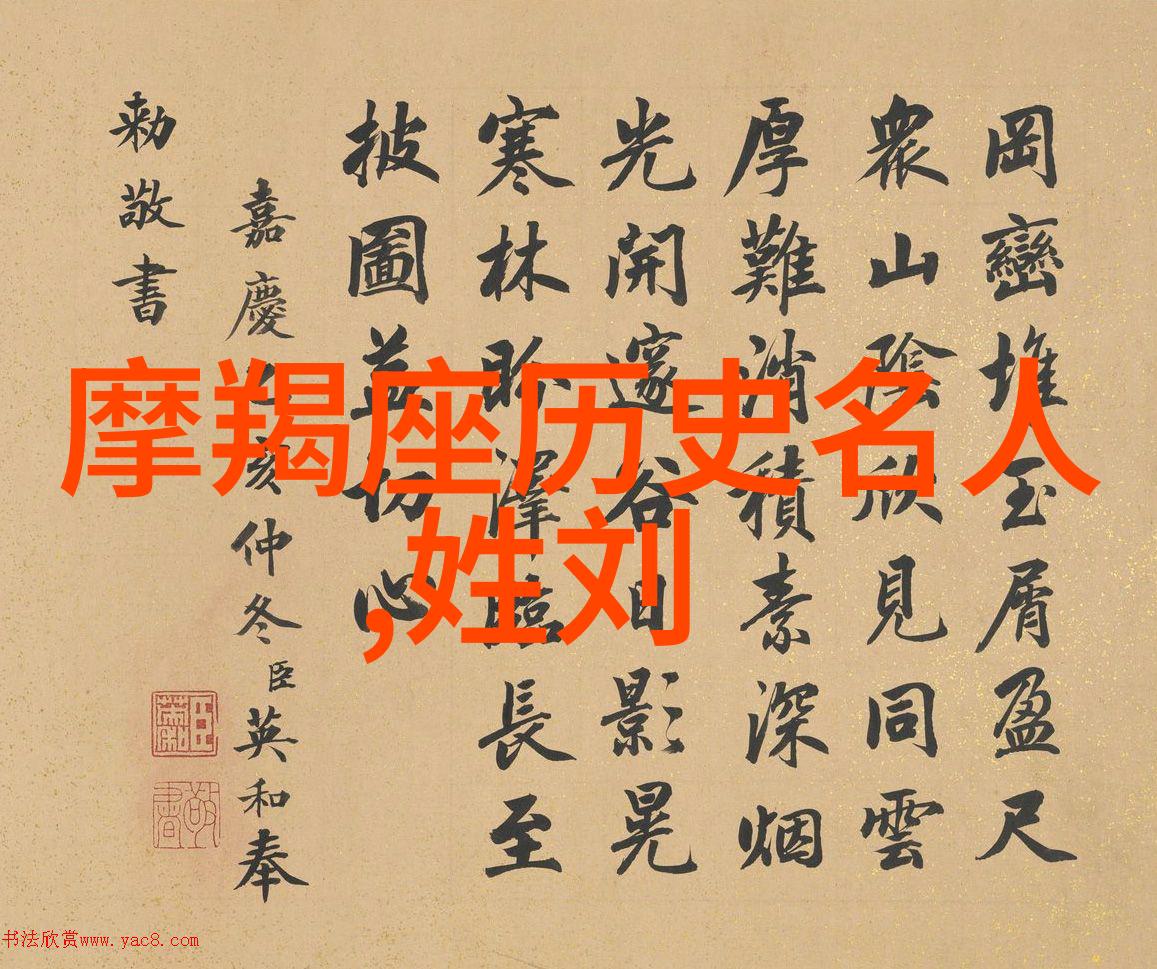 岡巒堆玉屑盈尺
衆山陰欣見同雲
厚難消積素深烟
光開邃谷日影晃
寒林澤臨長至
披圖益切心
嘉慶乙亥仲冬臣英和奉
勅敬書
敬書
摩羯座历史名人
,姓刘
书法欣赏www.yac8.com